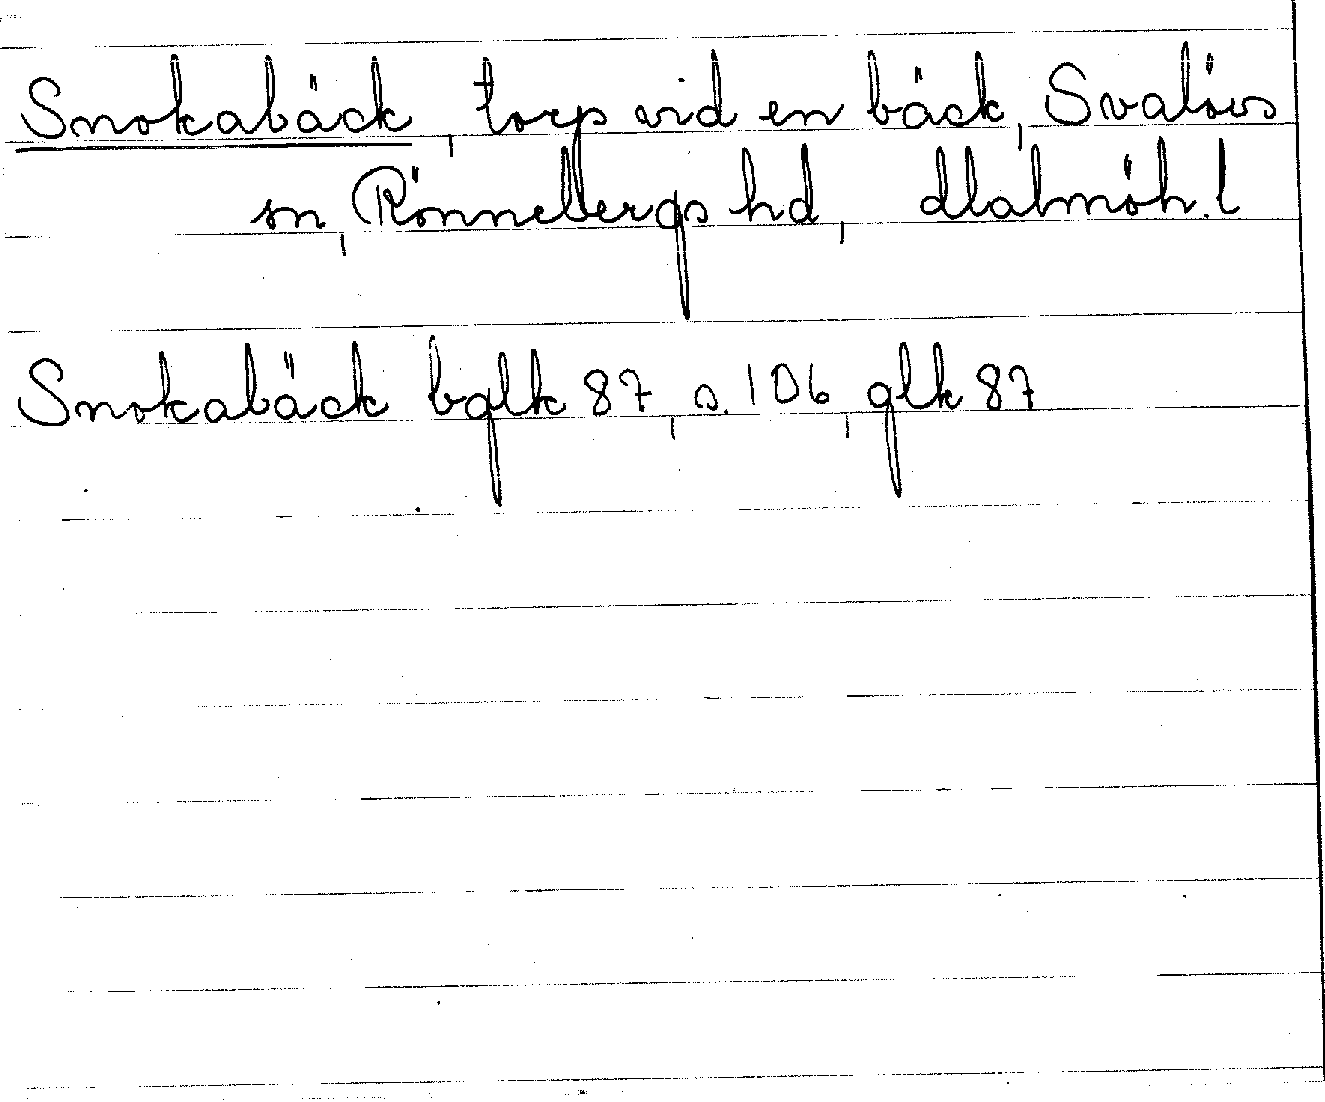 Snokabäck, torp vid en bäck, Svalövs
sn, Rönnebergs hd, Malmöh. l
Snokabäck bglk 87, s. 106, glk 87